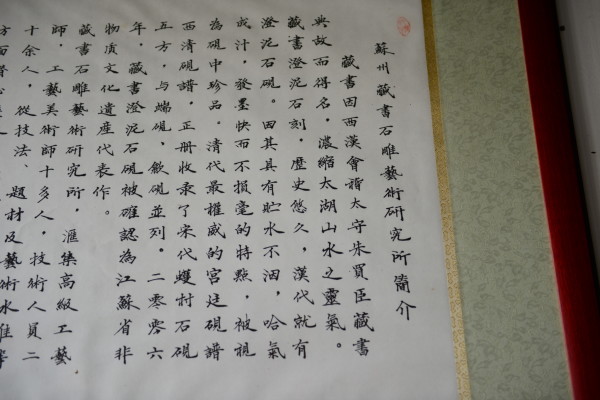 蘇州藏書石雕藝術研究所簡介
藏書因西漢會稽太守朱買臣藏書
典故而得名,濃縮太湖山水之靈氣。
藏書澄泥石刻,歷史悠久,漢代就有
澄泥石硯。因其具有貯水不涸,哈氣
成汁,發墨快而不損毫的特點,被視
為硯中珍品。清代最權威的宮廷硯譜
西清硯譜,正册收录了宋代蠖村石硯
五方,与端硯、歙硯並列,二零零六
年,藏書澄泥石硯被確認為江蘇省非
物质文化遺産代表作。
藏書石雕藝術研究所,滙集高級工藝
師,工藝美術師十多人,技術人員二
十余人,從技法、題材及藝術水准等
方面